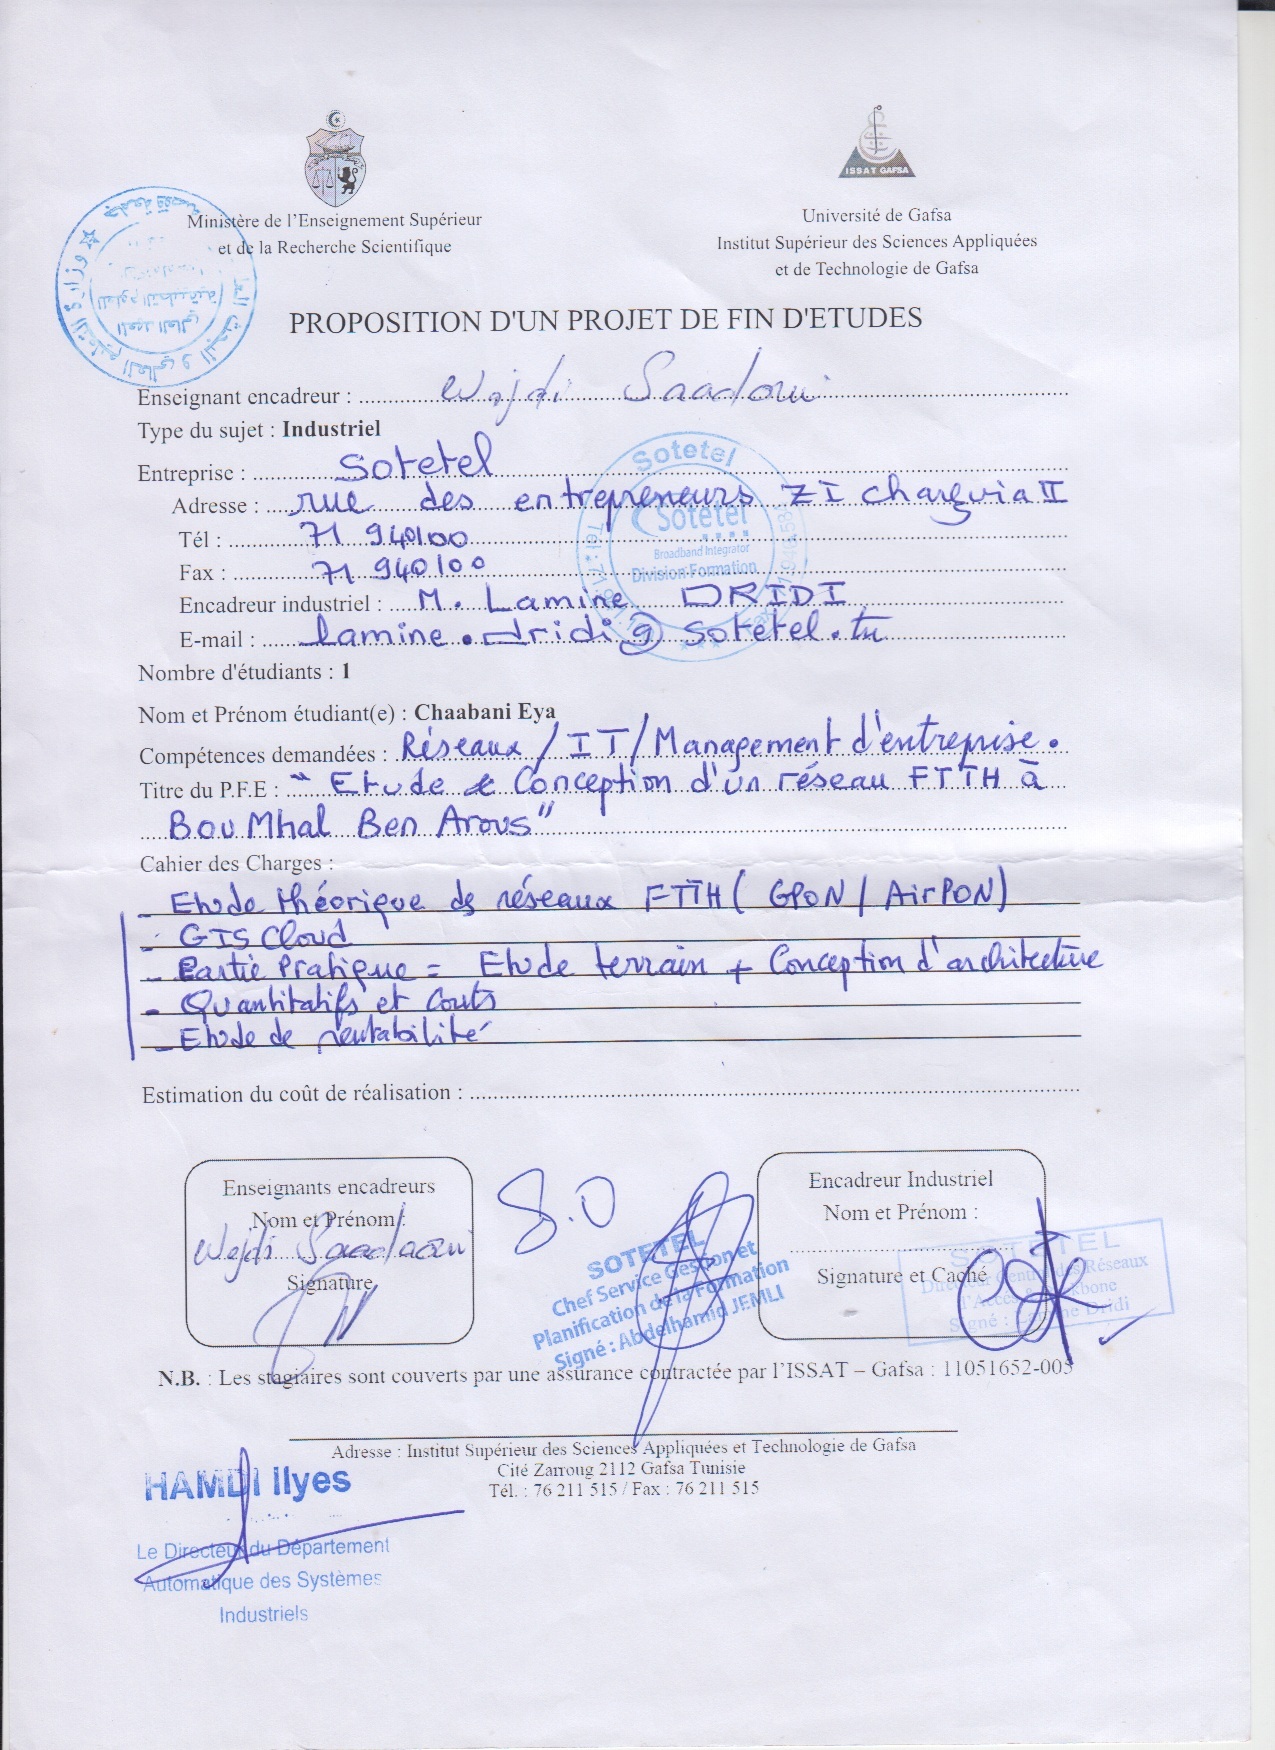 ISSAT GAFSA
Ministère de l'Enseignement Supérieur
et de la Recherche Scientifique
Université de Gafsa
Institut Supérieur des Sciences Appliquées
et de Technologie de Gafsa
PROPOSITION D'UN PROJET DE FIN D'ETUDES
Enseignant encadreur : Wajdi Saadaoui
Type du sujet : Industriel
Entreprise : Sotetel
Adresse : rue des entrepreneurs ZI charguia II
Tél : 71 940100
Fax : 71 940100
Encadreur industriel : M. Lamine DRIDI
E-mail : lamine.dridi@sotetel.tn
Sotetel
Sotetel
Broadband Integrator
Division Formation
Nombre d'étudiants : 1
Nom et Prénom étudiant(e) : Chaabani Eya
Compétences demandées : Réseaux / IT / Management d'entreprise.
Titre du P.F.E : "Etude & Conception d'un réseau FTTH à
Bou Mhal Ben Arous"
Cahier des Charges :
- Etude théorique des réseaux FTTH ( GPON / AirPON)
- GIS Cloud
- Partie Pratique = Etude terrain + Conception d'architecture
- Quantitatifs et Couts
- Etude de rentabilité
Estimation du coût de réalisation :
Enseignants encadreurs
Nom et Prénom :
Wajdi Saadaoui
Signature
S.O
SOTETEL
Chef Service Gestion et
Planification de la Formation
Signé : Abdelhamid JEMLI
Encadreur Industriel
Nom et Prénom :
Signature et Caché
SOTETEL
Directeur Central des Réseaux
d'Accès & Backbone
Signé : Lamine Dridi
N.B. : Les stagiaires sont couverts par une assurance contractée par l'ISSAT – Gafsa : 11051652-005
Adresse : Institut Supérieur des Sciences Appliquées et Technologie de Gafsa
Cité Zarroug 2112 Gafsa Tunisie
Tél. : 76 211 515 / Fax : 76 211 515
HAMDI Ilyes
Le Directeur du Département
Automatique des Systèmes
Industriels